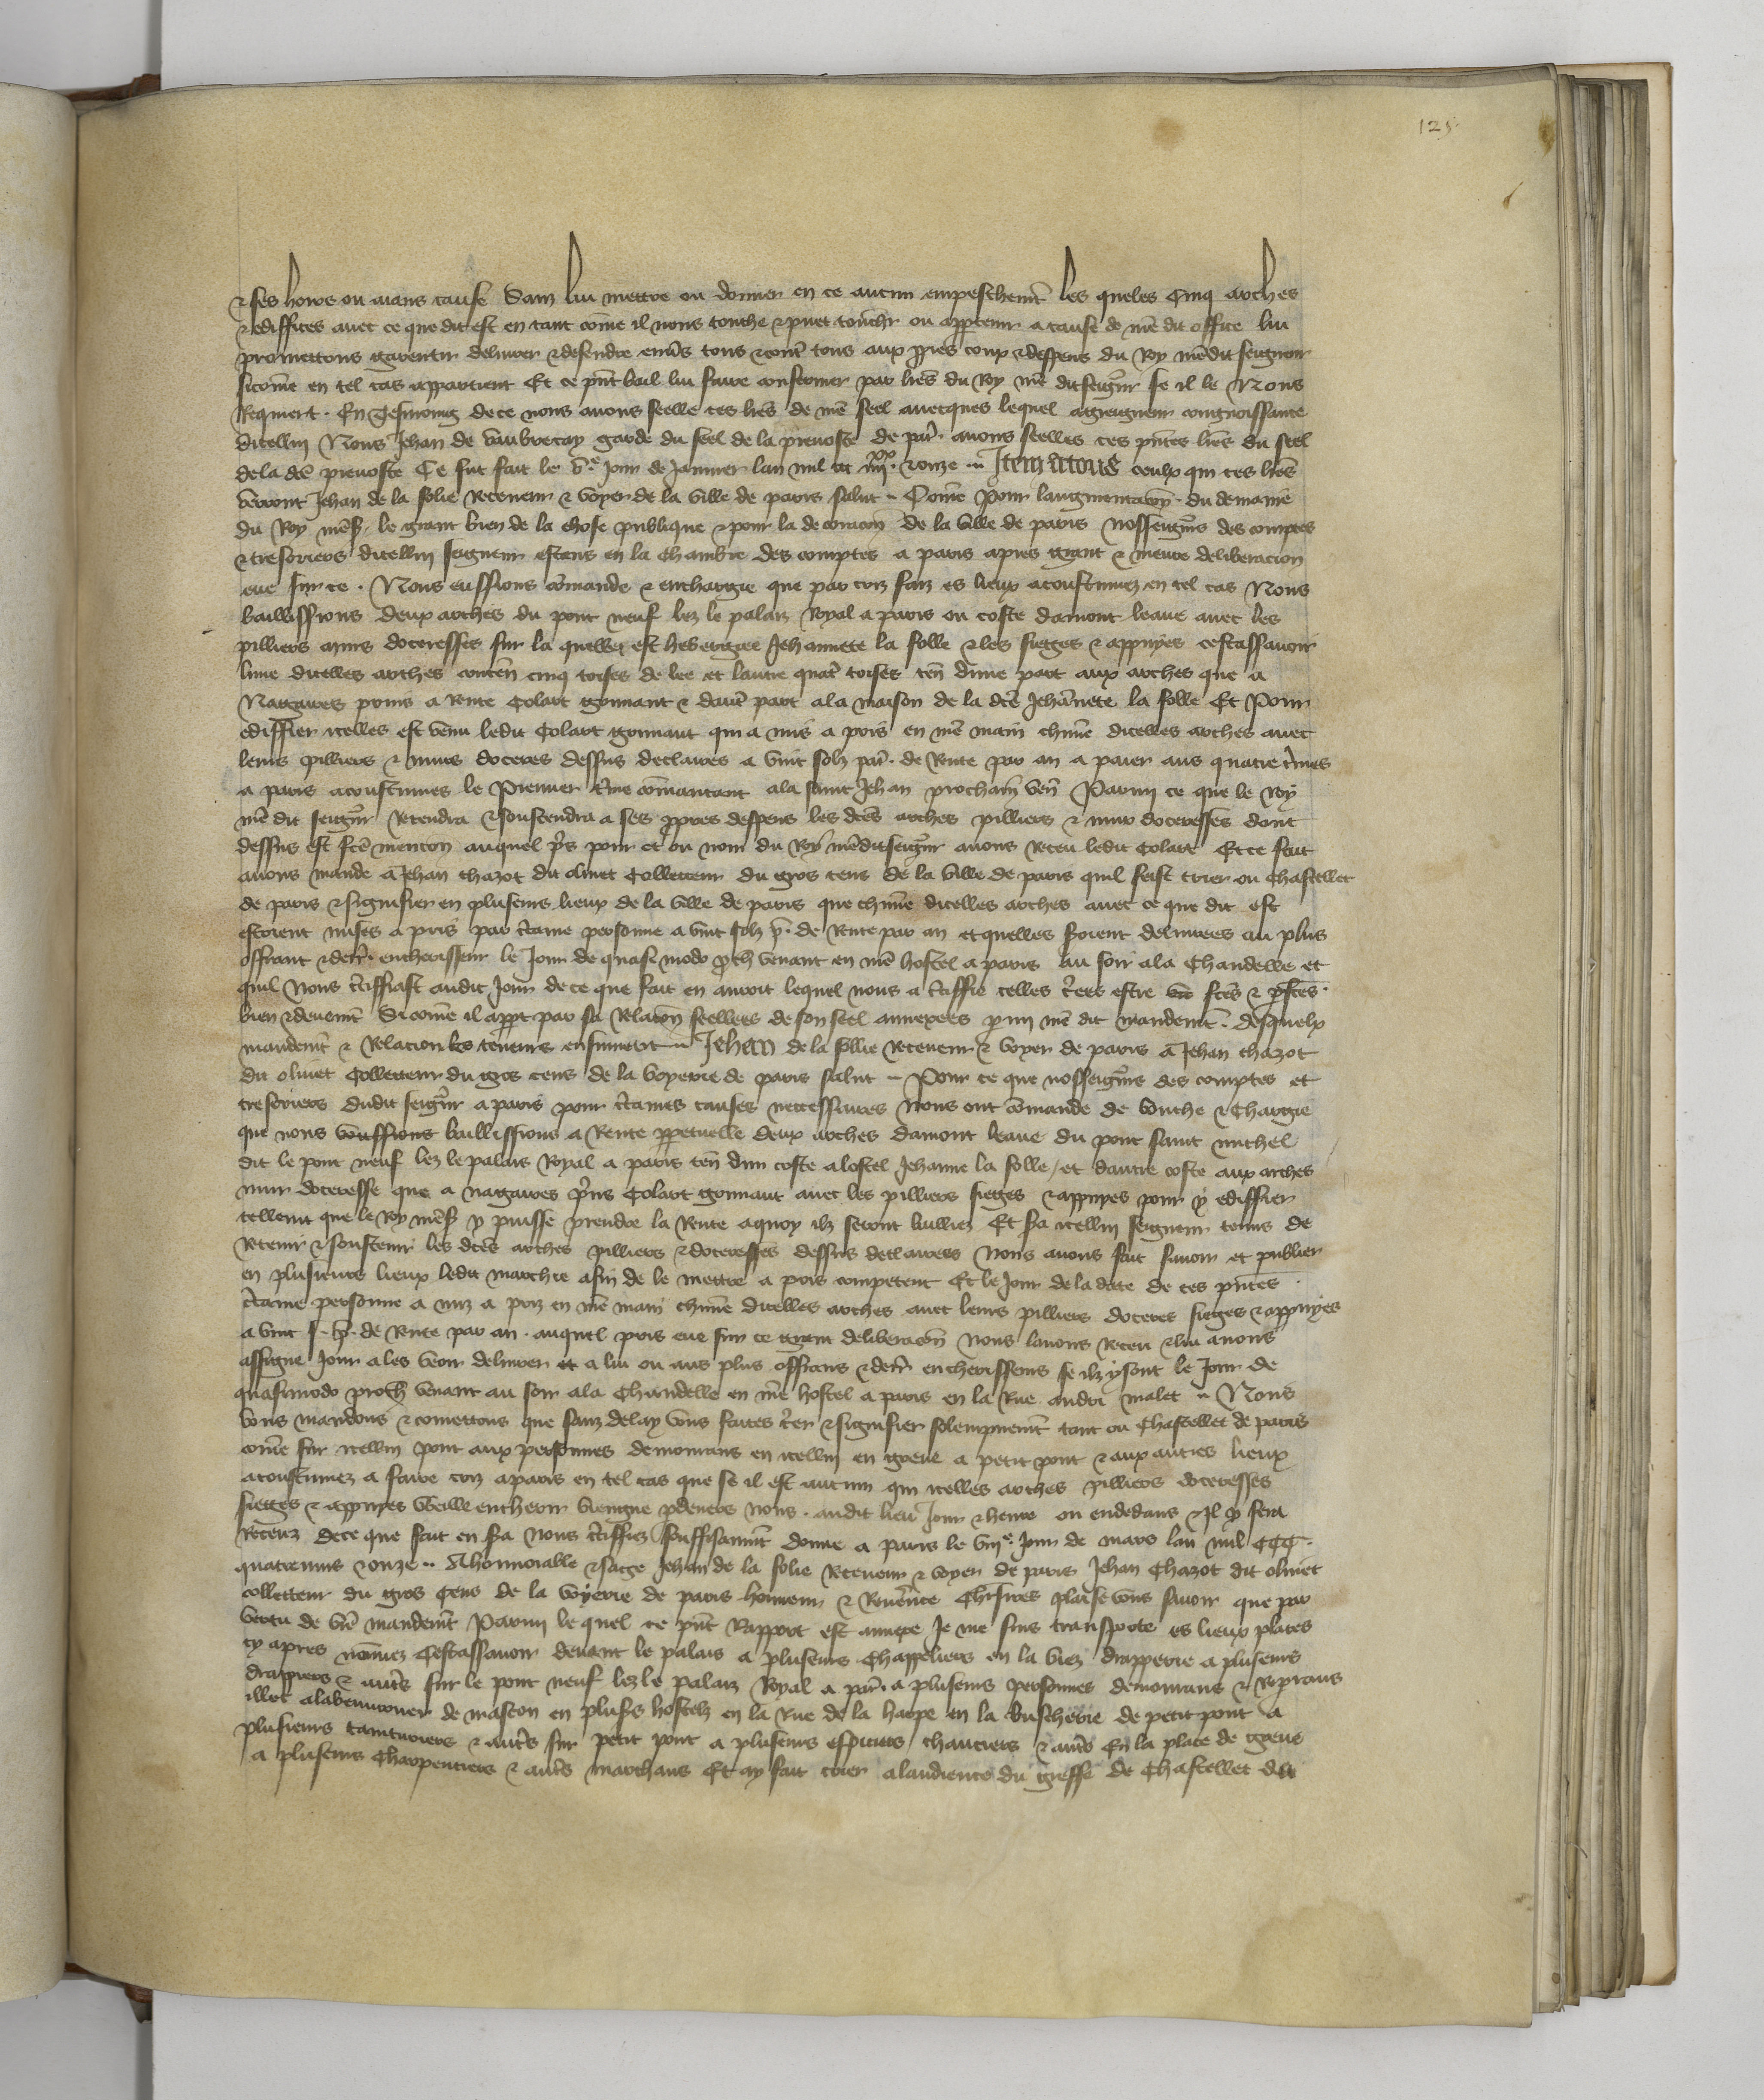 125
& ses hoirs ou aians cause Sanz lui mettre ou donner en ce aucun empeschemt les queles Cinq arches
& ediffices avec ce que dit est en tant come il nous touche & puet touchr ou appartenir a cause de nre dit office lui
promettons garentir delivrer & defendre envs tous & contre tous aux ppres coux & despens du Roy nredit seigneur
sicome en tel cas appartient Et ce pnt bail lui faire confermer par lres du Roy nre dit seigr se il le Nous
Requiert . En Tesmoing de ce nous avons seelle ces lres de nre seel avecques lequel a greigneur congnoissance
dicellui Nous Jehan de vaubrecay garde du seel de la prevoste de par. avons seelles ces pntes lres du seel
de la dce prevoste Ce fut fait le v.e Jour de Janvier lan mil ccc iiiixx. & onze .. Item A tous ceulx qui ces lres
verront Jehan de la folie Receveur & voyer de la ville de paris salut - Come Pour laugmentacion du demaine
du Roy nres. le grant bien de la chose publique & pour la decoracion de la ville de paris nosseigrs des comptes
& tresoriers dicellui seigneur estans en la chambre des comptes a paris apres grant & meure deliberacion
eue sur ce . Nous eussions comande & enchargie que par criz faiz es lieux acoustumez en tel cas Nous
baillissions deux arches du pont neuf lez le palaiz Royal a paris ou coste damont leaue avec les
pilliers murs doceresses sur la quelle est hebergiee Jehannete la folle & les sieges & appuyes cestassavoir
lune dicelles arches conten cinq toises de lee et lautre quatre toises ten dune part aux arches que a
Nagaires prins a Rente Colart gonnaut & dautre part a la maison de la dce Jehannete la folle Et Pour
ediffier icelles est venu ledit Colart gonnaut qui a mis a pris en nre main chune dicelles arches avec
leurs pilliers & murs doceres dessus declaires a vint solz par. de Rente par an a paier aus quatre tmes
a paris acoustumes le Premier tme comancant a la saint Jehan prochain ven Parmi ce que le Roy
nre dit seigr Retendra & soustendra a ses ppres despens les dces arches pilliers & mur doceresses dont
dessus est fce mencion auquel prs pour et ou nom du Roy nredit seigr avons Receu ledit Colart Et ce fait
avons mande a Jehan chazot dit olivet Collecteur du gros cens de la ville de paris quil feist crier ou Chastellet
de paris & signifier en plusieurs lieux de la ville de paris que chune dicelles arches avec ce que dit est
estoient mises a pris par ctaine personne a vint solz p. de Rente par an et quelles seroient delivrees au plus
offrant & derr. encherisseur le Jour de quasimodo proch venant en nre hostel a paris au soir a la Chandelle et
quil Nous ctiffiast audit Jour de ce que fait en auroit lequel nous a ctiffie celles cries estre fces & pfces .
bien & deuemt Si come il appt par sa Relacion seellees de son seel annexees pmi nre dit mandemt. desquelx
mandemt & Relacion les teneurs ensuivent .. Jehan de la follie Receveur & voyer de paris a Jehan chazot
dit olivet Collecteur du gros cens de la voyerie de paris salut - Pour ce que nosseigrs des comptes et
tresoriers dudit seigr a paris pour ctaines causes neccessaires Nous ont comande de bouche & Chargie
que nous voussions baillissions a Rente ppetuelle deux arches damont leaue du pont saint michel
dit le pont neuf lez le palais Royal a paris ten dun coste a lostel Jehanne la folle / et dautre coste aux arches
mur doceresse que a nagaires prns Colart gonnaut avec les pilliers sieges & appuyes pour y ediffier
tellemt que le Roy nres y puisse prendre la Rente a quoy ilz seront bailliez Et sera icellui seigneur tenus de
Retenir & soustenir les dces arches pilliers & doceresses dessus declairees Nous avons fait savoir et publier
en plusieurs lieux ledit marchie afin de le mettre a pris competent Et le Jour de la date de ces pntes .
ctaine personne a miz a priz en nre main chune dicelles arches avec leurs pilliers doceres sieges & appuyes
a vint s. p. de Rente par an . auquel pris eue sur ce grant deliberacion Nous lavons Receu & lui avons
assigne Jour a les veoir delivrer et a lui ou aus plus offrans & derr encherisseurs se ilz y sont le Jour de
quasimodo proch venant au soir a la Chandelle en nre hostel a paris en la Rue andri malet .. Nous
vous mandons & cometons que sanz delay vous faites crer & signifier solempnemt tant ou Chastellet de paris
come sur icellui pont aux personnes demourans en icellui en greve a petit pont & aux autres lieux
acoustumez a faire criz a paris en tel cas que se il est aucun qui icelles arches pilliers doceresses
sieges & appuyes vueille encherir viengne pdevers nous . audit lieu Jour & heure ou endedans & Il y sera
Receuz De ce que fait en sera Nous ctiffiez souffisamt donne a paris le viije. Jour de mars lan mil CCC .
quatrevins & onze .. A honnorable & sage Jehan de la folie Receveur & voyer de paris Jehan Chazot dit olivet
collecteur du gros Cens de la voyerie de paris honneur & Reverence Chrsires plaise vous savoir que par
vertu de vre mandemt Parmi lequel ce pnt Rapport est annexe Je me suis transporte es lieux places
cy apres nommez Cestassavoir devant le palais a plusieurs Chappeliers en la viez drapperie a plusieurs
drappiers & autrs sur le pont neuf lez le palaiz Royal a par. a plusieurs personnes demourans & Reprans
illec a labeuvroner de mascon en plusrs hostelz en la Rue de la harpe en la buscherie de petit pont a
plusieurs tainturiers & autrs sur petit pont a plusieurs espiciers chauciers & autrs En la place de greve
a plusieurs Charpentiers & autrs marchans Et ay fait crier a laudience du greffe de Chastellet du